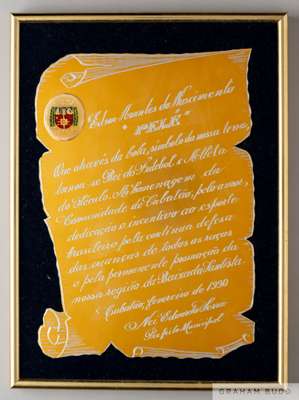 Edson Arantes do Nascimento
"PELÉ"
Que através da bola, símbolo da nossa terra,
o Rei do Futebol e Atleta
do Século. As homenagens da
Comunidade de Cubatão, pelo amor,
dedicação e incentivo ao esporte
brasileiro pela contínua defesa
das crianças de todas as raças
e pela permanente promoção da
nossa região da Baixada Santista.
Cubatão, fevereiro de 1990
Prefeito Municipal
GRAHAM BUDD